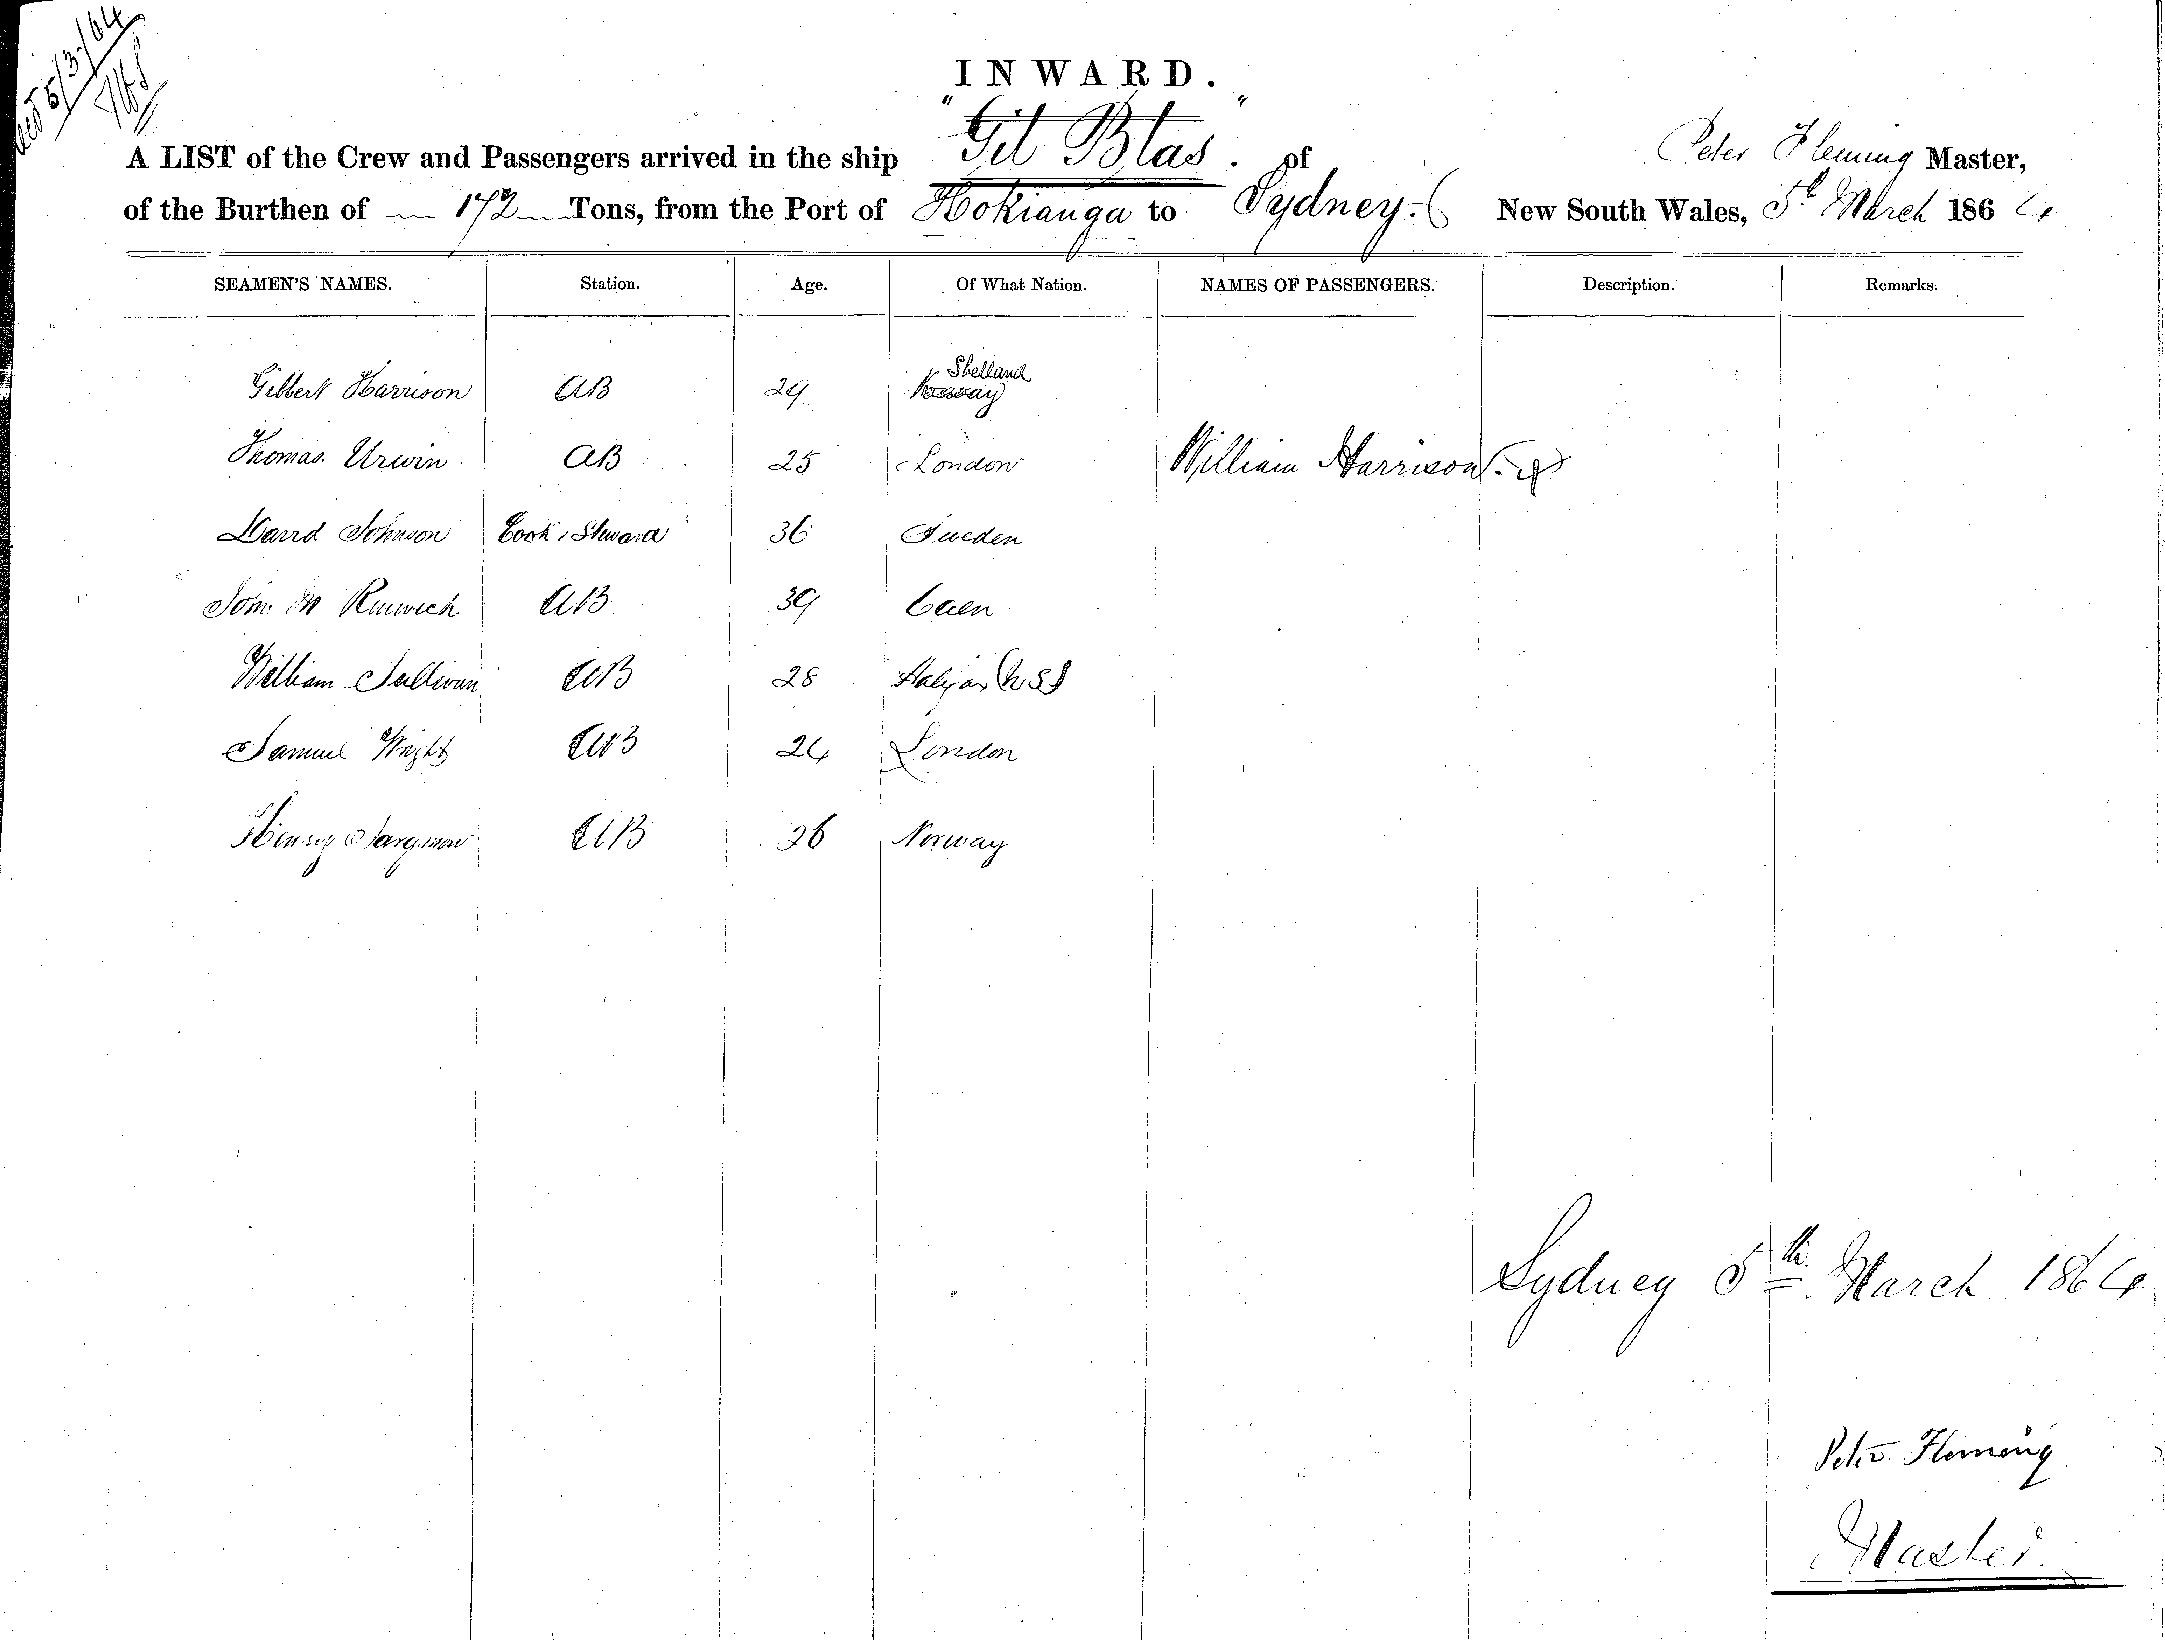 5/3/64
INWARD.
A LIST of the Crew and Passengers arrived in the ship "Gil Blas". of Peter Fleming Master,
of the Burthen of 172 Tons, from the Port of Hokianga to Sydney New South Wales, 5th March 1864
SEAMEN'S NAMES. Station. Age. Of What Nation. NAMES OF PASSENGERS. Description. Remarks.
Shetland
Gilbert Harrison AB 29 Norway
Thomas Urwin AB 25 London William Harrison
David Johnson Cook & Steward 36 Sweden
Renwick AB 39 Caen
William Sullivan AB 28 Halifax
Samuel Wright AB 24 London
Henry AB 26 Norway
Sydney 5th March 1864
Peter Fleming
Master